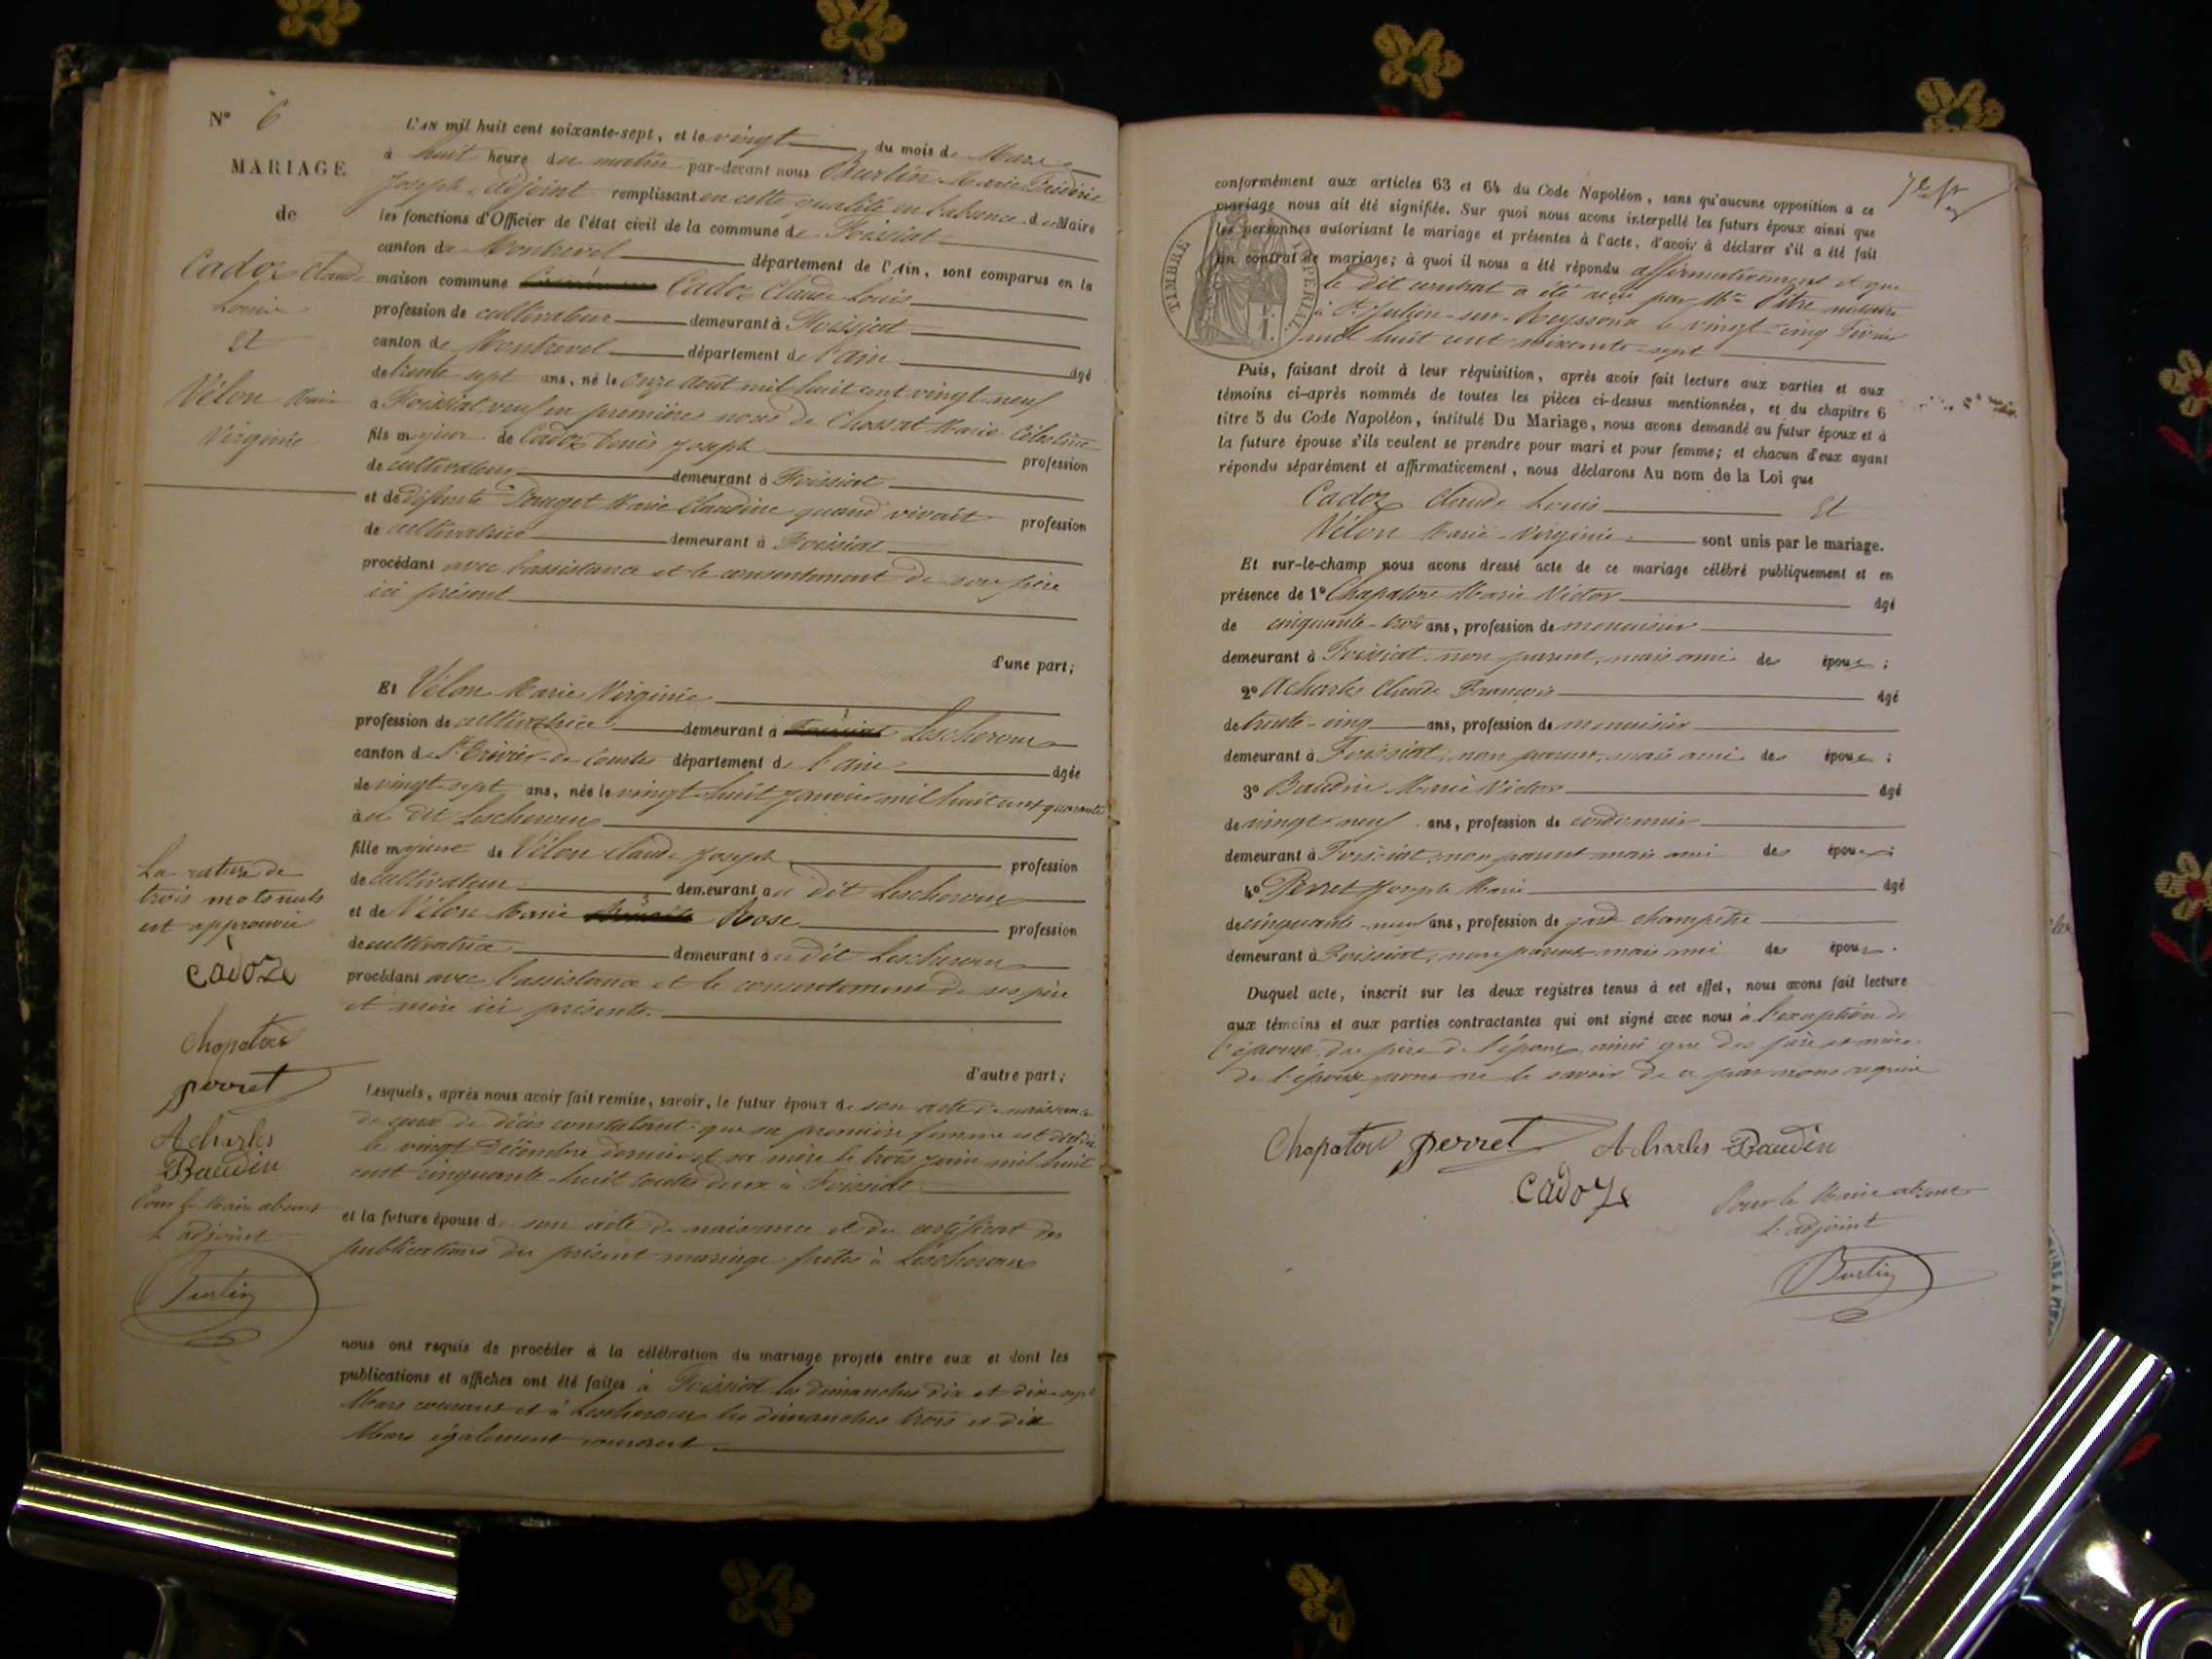 N° 6
MARIAGE
de
Cadoz Claude
Louis
et
Vélon Marie
Virginie
L'AN mil huit cent soixante-sept, et le vingt du mois de Mars
à huit heure du matin par-devant nous Burtin Marie Frédéric
Joseph, adjoint remplissant en cette qualité en l'absence du Maire
les fonctions d'Officier de l'état civil de la commune de Foissiat
canton de Montrevel département de l'Ain, sont comparus en la
maison commune Cadoz Claude Louis
profession de cultivateur demeurant à Foissiat
canton de Montrevel département de l'ain âgé
de trente-sept ans, né le onze août mil huit cent vingt-neuf
à Foissiat veuf en premières noces de Chossat Marie Célestine
fils majeur de Cadoz Denis Joseph profession
de cultivateur demeurant à Foissiat
et de défunte Pouget Marie Claudine quand vivait profession
de cultivatrice demeurant à Foissiat
procédant avec l'assistance et le consentement de son père
ici présent
d'une part;
Et Vélon Marie Virginie
profession de cultivatrice demeurant à Lescheroux
canton de St Trivier-de Courtes département de l'ain âgée
de vingt-sept ans, née le vingt-huit janvier mil huit cent quarante
au dit Lescheroux
fille majeure de Vélon Claude Joseph profession
de cultivateur demeurant au dit Lescheroux
et de Vélon Marie Rose profession
de cultivatrice demeurant au dit Lescheroux
procédant avec l'assistance et le consentement de ses père
et mère ici présents.
d'autre part;
Lesquels, après nous avoir fait remise, savoir, le futur époux de son acte de naissance
de ceux de décès constatant que sa première femme est décédée
le vingt Décembre dernier et sa mère le trois juin mil huit
cent cinquante-huit toutes deux à Foissiat
et la future épouse de son acte de naissance et du certificat des
publications du présent mariage faites à Lescheroux
nous ont requis de procéder à la célébration du mariage projeté entre eux et dont les
publications et affiches ont été faites à Foissiat les dimanches dix et dix-sept
Mars courant et à Lescheroux les dimanches trois et dix
Mars également courant.
La rature de
trois mots nuls
est approuvée
CADOZ
Chapatou
perret
Acharles
Baudin
Pour le Maire absent
L'adjoint
Burtin
conformément aux articles 63 et 64 du Code Napoléon, sans qu'aucune opposition à ce
mariage nous ait été signifiée. Sur quoi nous avons interpellé les futurs époux ainsi que
les personnes autorisant le mariage et présentes à l'acte, d'avoir à déclarer s'il a été fait
un contrat de mariage; à quoi il nous a été répondu affirmativement et que
le dit contrat a été reçu par Me notaire
à St Julien-sur-Reyssouze le vingt-cinq Février
mil huit cent soixante-sept
TIMBRE IMPERIAL
Puis, faisant droit à leur réquisition, après avoir fait lecture aux parties et aux
témoins ci-après nommés de toutes les pièces ci-dessus mentionnées, et du chapitre 6
titre 5 du Code Napoléon, intitulé Du Mariage, nous avons demandé au futur époux et à
la future épouse s'ils veulent se prendre pour mari et pour femme; et chacun d'eux ayant
répondu séparément et affirmativement, nous déclarons Au nom de la Loi que
Cadoz Claude Louis et
Vélon Marie-Virginie sont unis par le mariage.
Et sur-le-champ nous avons dressé acte de ce mariage célébré publiquement et en
présence de 1° Chapatou Marie Victor âgé
de cinquante-trois ans, profession de menuisier
demeurant à Foissiat, non parent, mais ami des époux;
2° Acharles Claude François âgé
de trente-cinq ans, profession de menuisier
demeurant à Foissiat, non parent, mais ami des époux;
3° Baudin Marie Victor âgé
de vingt-neuf ans, profession de cordonnier
demeurant à Foissiat, non parent mais ami des époux;
4° Perret Joseph Marie âgé
de cinquante-neuf ans, profession de garde champêtre
demeurant à Foissiat, non parent mais ami des époux.
Duquel acte, inscrit sur les deux registres tenus à cet effet, nous avons fait lecture
aux témoins et aux parties contractantes qui ont signé avec nous à l'exception de
l'épouse, du père de l'époux, ainsi que des père et mère
de l'épouse pour ne le savoir de ce par nous requis
Chapatou perret Acharles Baudin
CADOZ
Pour le Maire absent
L'adjoint
Burtin